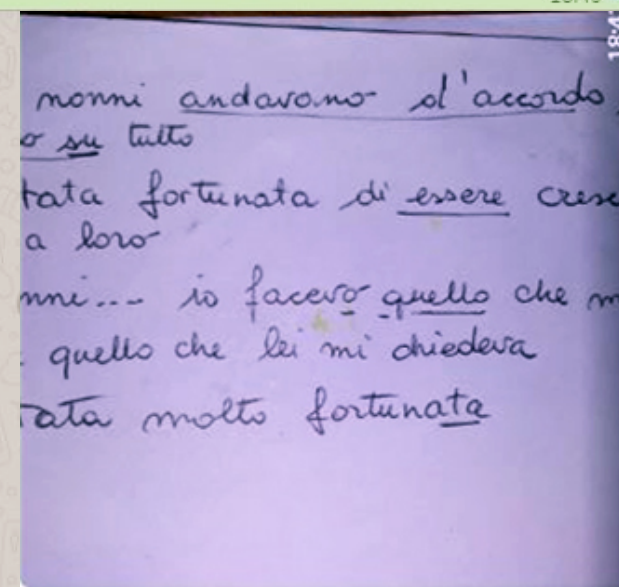 nonni andavano d'accordo
su tutto
fortunata di essere
a loro
io facevo quello che
quello che lei mi chiedeva
molto fortunata
18:4